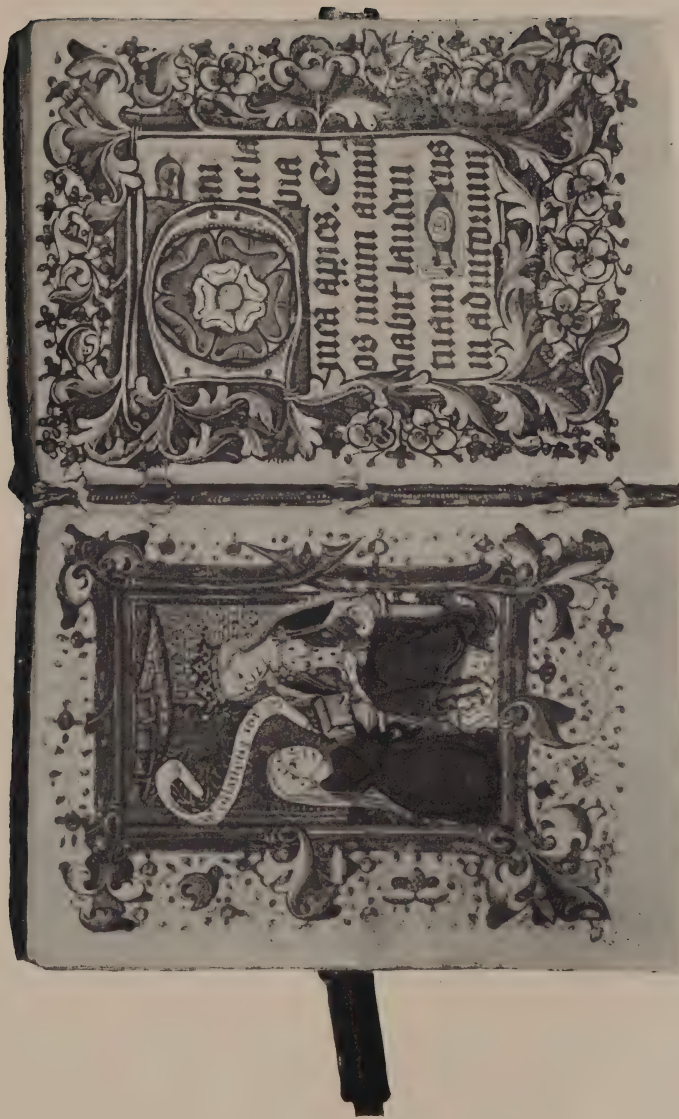 DO
mi
ne la
bia
mea apies. Et
os meum annū
ciabit laudem
tuam Deus
in adiutorium